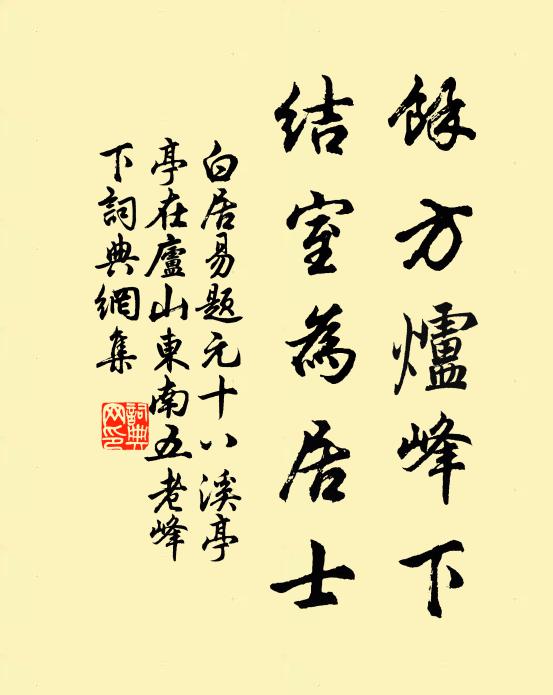 餘方爐峰下
結室為居士
白居易題元十八溪亭
亭在廬山東南五老峰
下詞典網集
詞典
网印